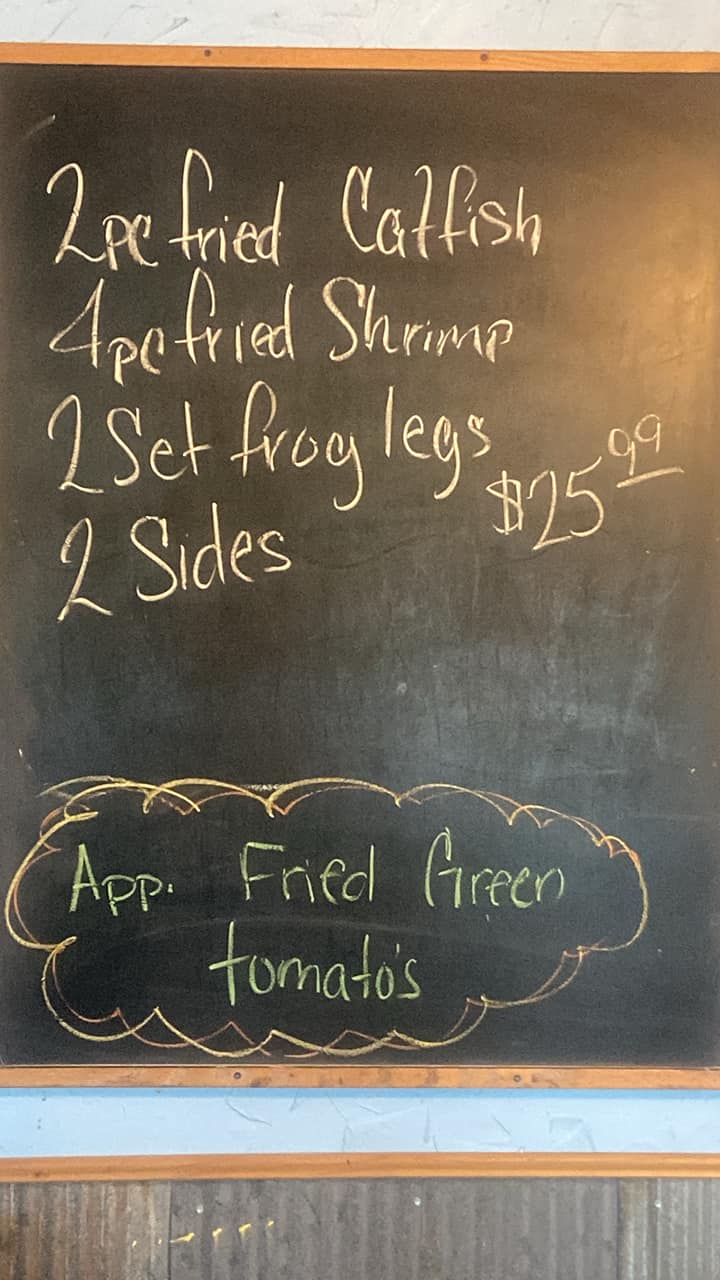 2pc fried Catfish
4pc fried Shrimp
2 Set frog legs
$25.99
2 Sides
App. Fried Green
tomato's